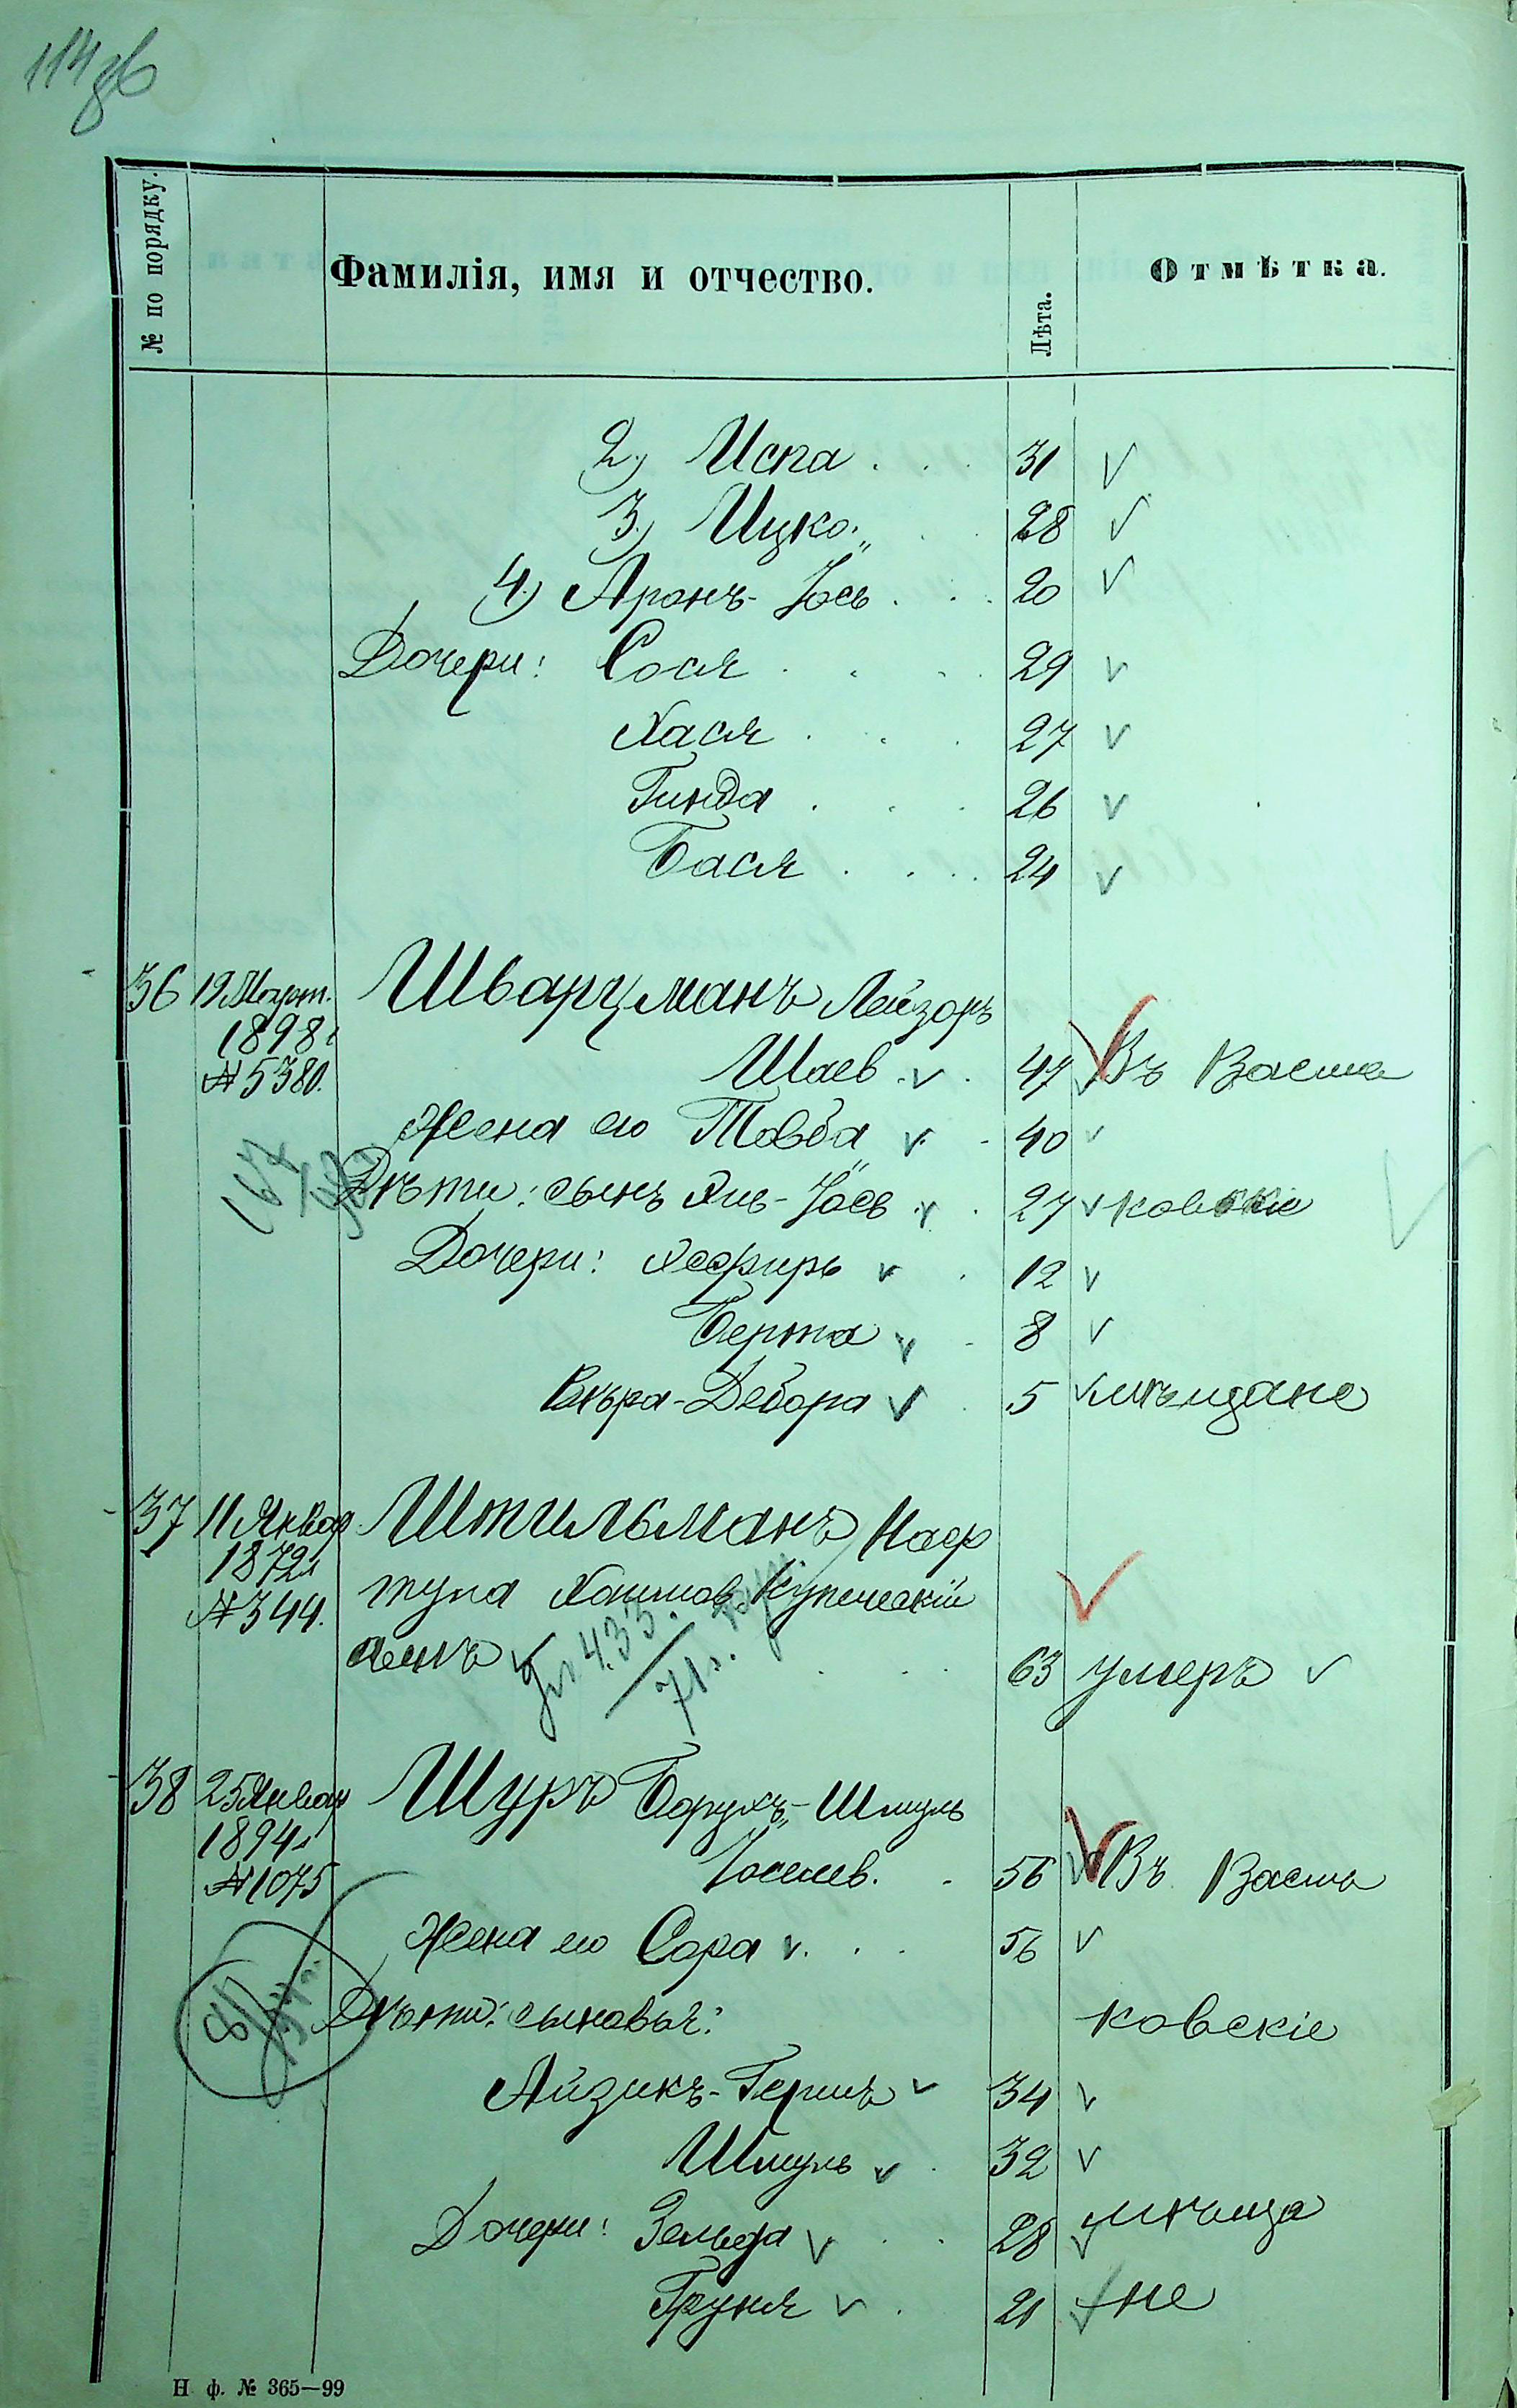 114 об
№ по порядку.
Фамилія, имя и отчество.
Лѣта.
Отмѣтка.
2) Испа . . 31 ѵ
3) Ицко . . 28 ѵ
4) Аронъ-Іось . . . 20 ѵ
Дочери: Сося . . . 29 ѵ
Хася . . . 27 ѵ
Гинда . . . 26 ѵ
Бася . . . 24 ѵ
36 19 Март. Шварцманъ Лейзоръ
1898 г
№ 5380. Шаев . ѵ . 47 ѵ Въ Василь
Жена его Товба ѵ . 40 ѵ
Дѣти: сынъ -Іось ѵ . 27 ѵ ковскіе
Дочери: Эсфирь ѵ . 12 ѵ
Берта ѵ . 8 ѵ
Вѣра-Дебора ѵ . 5 ѵ мѣщане
37 11 Январ Штильманъ Наф
1872 г
№ 344. тула Хаимов Купеческій
сынъ . . . 63 умеръ ѵ
433.
71 г.
38 25 Январ Шуръ Борухъ-Шмуль
1894 г
№ 1075 Іоселев. . 56 ѵ Въ Василь
Жена его Сора ѵ . . . 56 ѵ
Дѣти: сыновья: ковскіе
Айзикъ-Гершъ ѵ 34 ѵ
Шмуль ѵ . 32 ѵ
Дочери: Зельда ѵ . . 28 ѵ мѣща
Груня ѵ . 21 ѵ не
Н. ф. № 365—99